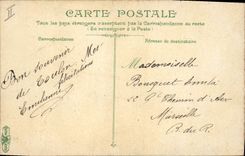 CARTE POSTALE
Tous les pays étrangers n'acceptent pas la Correspondance au recto
(Se renseigner à la Poste)
Correspondance
Adresse du destinataire
Bon souvenir
de
félicitations
Mademoiselle
Bousquet
Chemin d'
Marseille
B. du R.